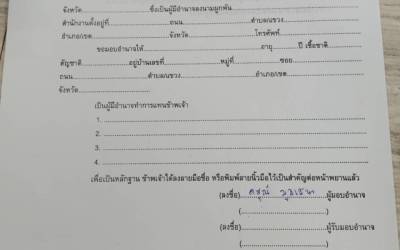 จังหวัด..............................ซึ่งเป็นผู้มีอำนาจลงนามผูกพัน..............................
สำนักงานตั้งอยู่ที่....................ถนน..............................ตำบล/แขวง....................
อำเภอ/เขต..............................จังหวัด..............................โทรศัพท์....................
ขอมอบอำนาจให้..............................อายุ..........ปี เชื้อชาติ..........
สัญชาติ....................อยู่บ้านเลขที่....................หมู่ที่..........ซอย....................
ถนน....................ตำบล/แขวง..............................อำเภอ/เขต....................
จังหวัด....................
เป็นผู้มีอำนาจทำการแทนข้าพเจ้า
1. ..............................
2. ..............................
3. ..............................
4. ..............................
เพื่อเป็นหลักฐาน ข้าพเจ้าได้ลงลายมือชื่อ หรือพิมพ์ลายนิ้วมือไว้เป็นสำคัญต่อหน้าพยานแล้ว
(ลงชื่อ)..............................ผู้มอบอำนาจ
(..............................)
(ลงชื่อ)..............................ผู้รับมอบอำนาจ
(..............................)